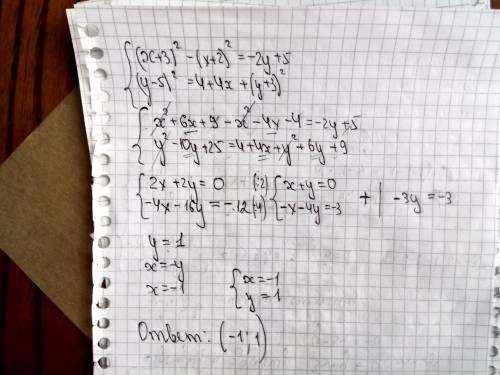 (x+3)² - (x+2)² = -2y+5
(y-5)² = 4+4x+(y+3)²
x²+6x+9-x²-4x-4=-2y+5
y²-10y+25=4+4x+y²+6y+9
{2x+2y=0 (:2) {x+y=0 + | -3y=-3
{-4x-16y=-12(:4) {-x-4y=-3
y=1
x=-y
x=-1 {x=-1
{y=1
Ответ: (-1; 1)